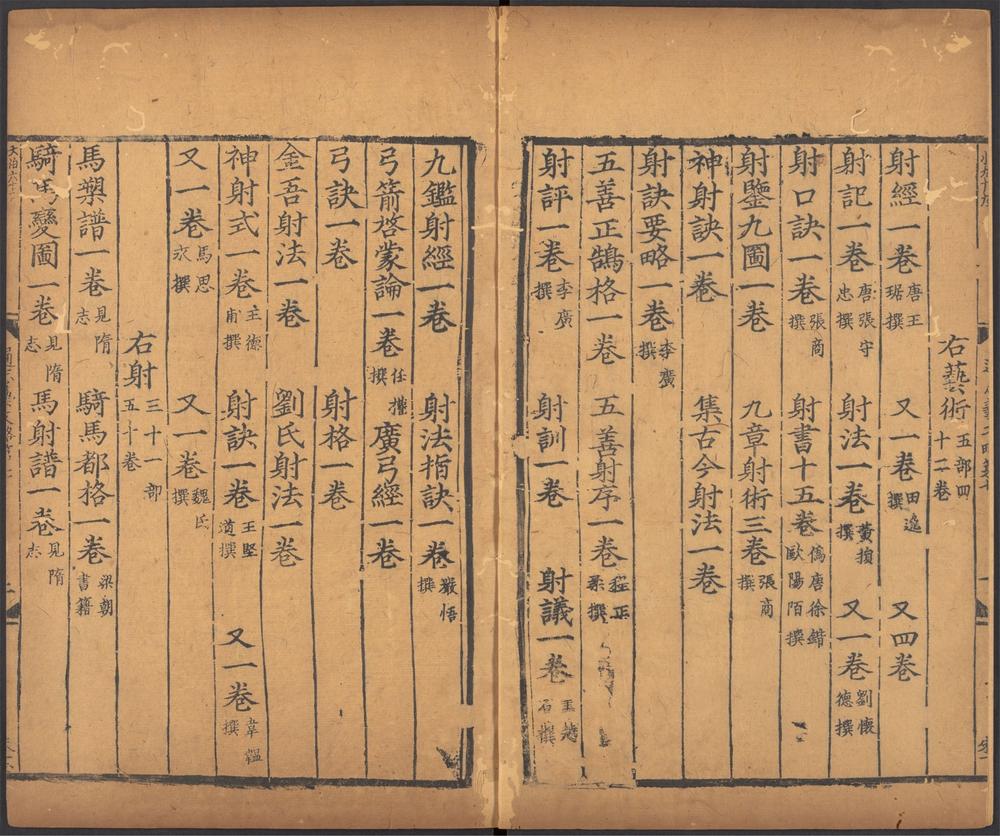 右藝術五部四十二卷
射經一卷唐王琚撰 又一卷田逸撰 又四卷
射記一卷唐張守忠撰 射法一卷黃損撰 又一卷劉懷德撰
射口訣一卷張商撰 射書十五卷偽唐徐鍇歐陽陌撰
射鑒九圖一卷 九章射術三卷張商撰
神射訣一卷 集古今射法一卷
射訣要略一卷李廣撰
五善正鵠格一卷 五善射序一卷程正柔撰
射評一卷李廣撰 射訓一卷 射議一卷王越石撰
九鑑射經一卷 射法指訣一卷嚴悟撰
弓箭啓蒙論一卷任權撰 廣弓經一卷
弓訣一卷 射格一卷
金吾射法一卷 劉氏射法一卷
神射式一卷王德甫撰 射訣一卷王堅道撰 又一卷韋韞撰
又一卷馬思永撰 又一卷魏氏撰
右射三十一部五十卷
馬槊譜一卷見隋志 騎馬都格一卷梁朝書籍
騎馬變圖一卷見隋志 馬射譜一卷見隋志